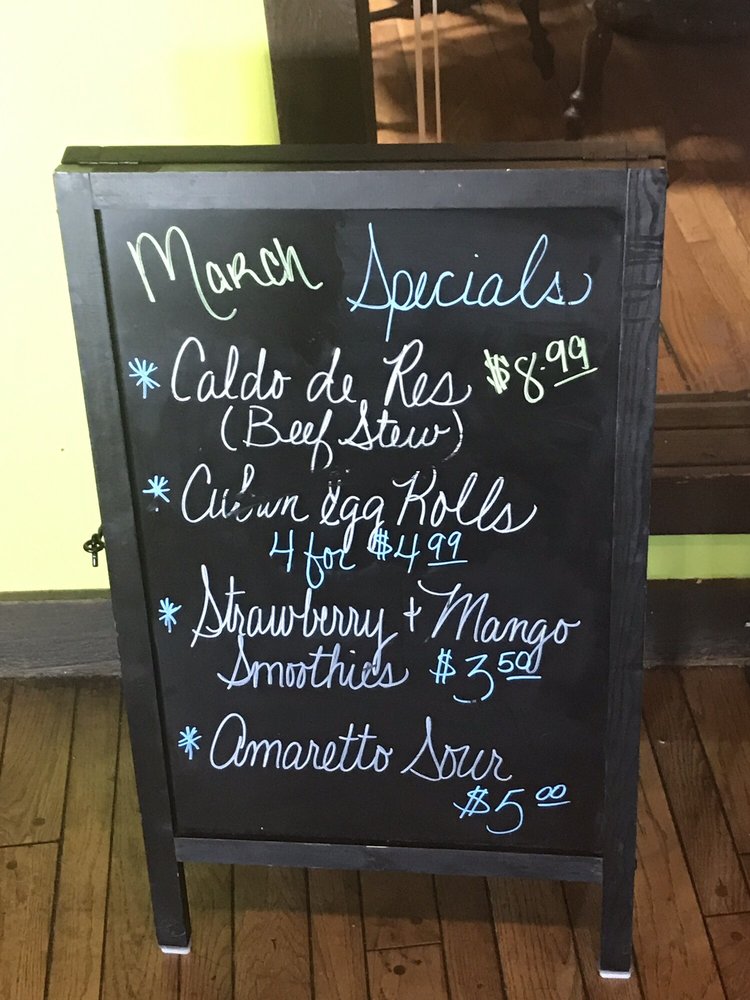 March Specials
* Caldo de Res $8.99
(Beef Stew)
* Cuban Egg Rolls
4 for $4.99
* Strawberry + Mango
Smoothies $3.50
* Amaretto Sour
$5.00